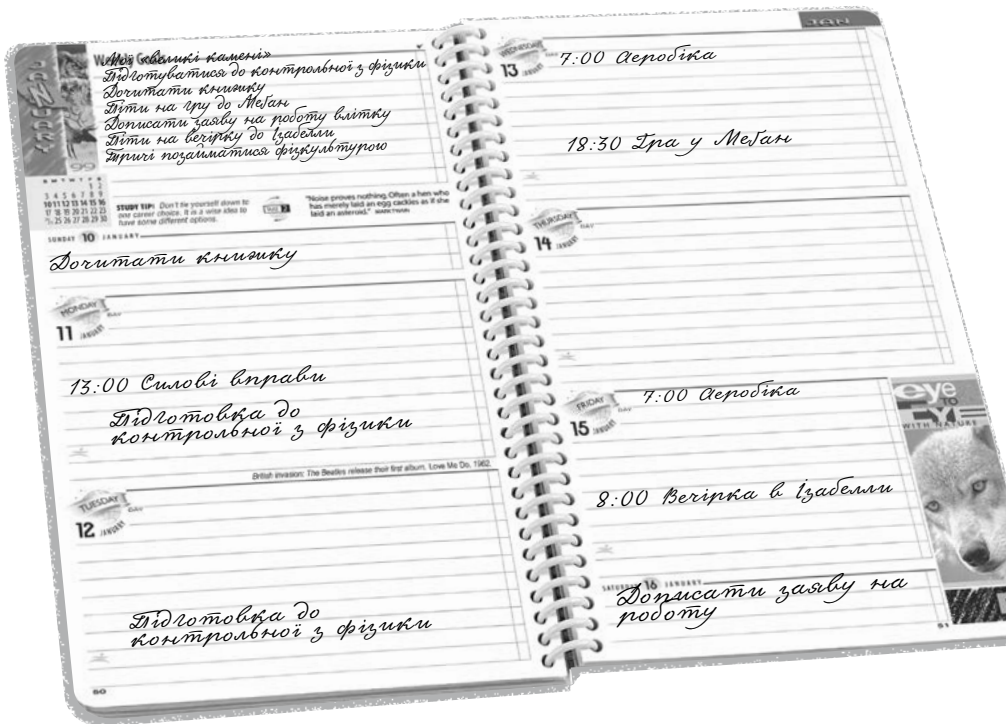 Weekly Goals
Мої «великі камені»
Підготуватися до контрольної з фізики
Дочитати книжку
Піти на гру до Меґан
Дописати заяву на роботу влітку
Піти на вечірку до Ізабелли
Тричі позайматися фізкультурою
JANUARY
99
S M T W T F S
1 2
3 4 5 6 7 8 9
10 11 12 13 14 15 16
17 18 19 20 21 22 23
25 26 27 28 29 30
STUDY TIP: Don't tie yourself down to
one career choice. It is a wise idea to
have some different options.
"Noise proves nothing. Often a hen who
has merely laid an egg cackles as if she
laid an asteroid." MARK TWAIN
SUNDAY 10 JANUARY
Дочитати книжку
MONDAY
DAY
11 JANUARY
13:00 Силові вправи
Підготовка до
контрольної з фізики
British invasion: The Beatles release their first album, Love Me Do, 1962.
TUESDAY
DAY
12 JANUARY
Підготовка до
контрольної з фізики
50
JAN
WEDNESDAY
DAY
13 JANUARY
7:00 Аеробіка
18:30 Гра у Меґан
THURSDAY
DAY
14 JANUARY
FRIDAY
DAY
15 JANUARY
7:00 Аеробіка
8:00 Вечірка в Ізабелли
eye
TO
EYE
WITH NATURE
SATURDAY 16 JANUARY
Дописати заяву на
роботу
51